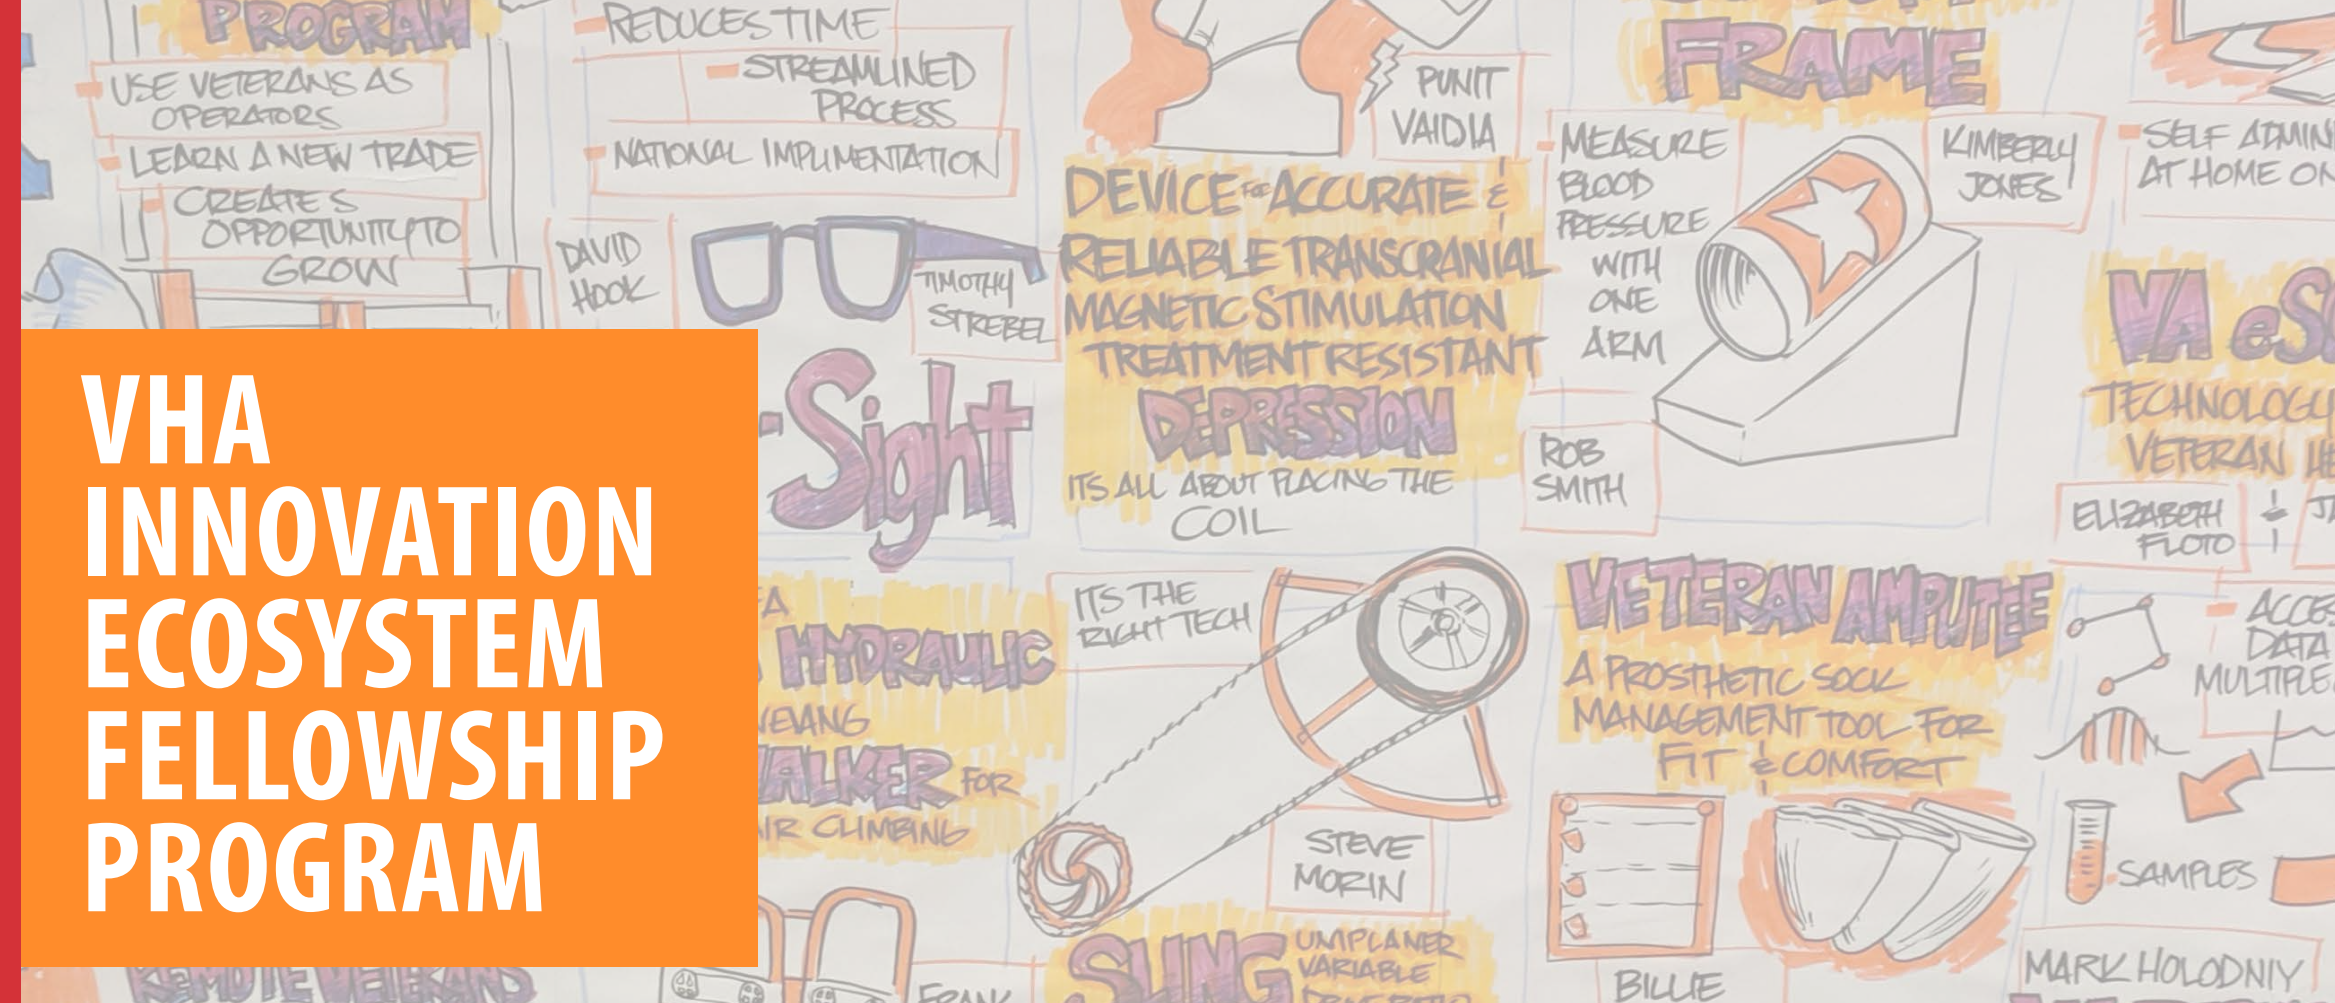 PROGRAM
USE VETERANS AS
OPERATORS
LEARN A NEW TRADE
CREATES
OPPORTUNITY TO
GROW
REDUCES TIME
STREAMLINED
PROCESS
NATIONAL IMPLIMENTATION
DAVID
HOOK
TIMOTHY
STREBEL
-Sight
PUNIT
VAIDIA
DEVICE FOR ACCURATE &
RELIABLE TRANSCRANIAL
MAGNETIC STIMULATION
TREATMENT RESISTANT
DEPRESSION
ITS ALL ABOUT PLACING THE
COIL
FRAME
MEASURE
BLOOD
PRESSURE
WITH
ONE
ARM
KIMBERLY
JONES
ROB
SMITH
SELF ADMIN
AT HOME ON
VA eS
TECHNOLOGY
VETERAN HE
ELIZABETH
FLOTO
&
VHA
INNOVATION
ECOSYSTEM
FELLOWSHIP
PROGRAM
HYDRAULIC
ALKER FOR
IR CLIMBING
ITS THE
RIGHT TECH
STEVE
MORIN
VETERAN AMPUTEE
A PROSTHETIC SOCK
MANAGEMENT TOOL FOR
FIT & COMFORT
ACCES
DATA
MULTIPLE
SAMPLES
MARK HOLODNIY
BILLIE
SLING
UNIPLANER
VARIABLE
FRANK
REMOTE VETERANS